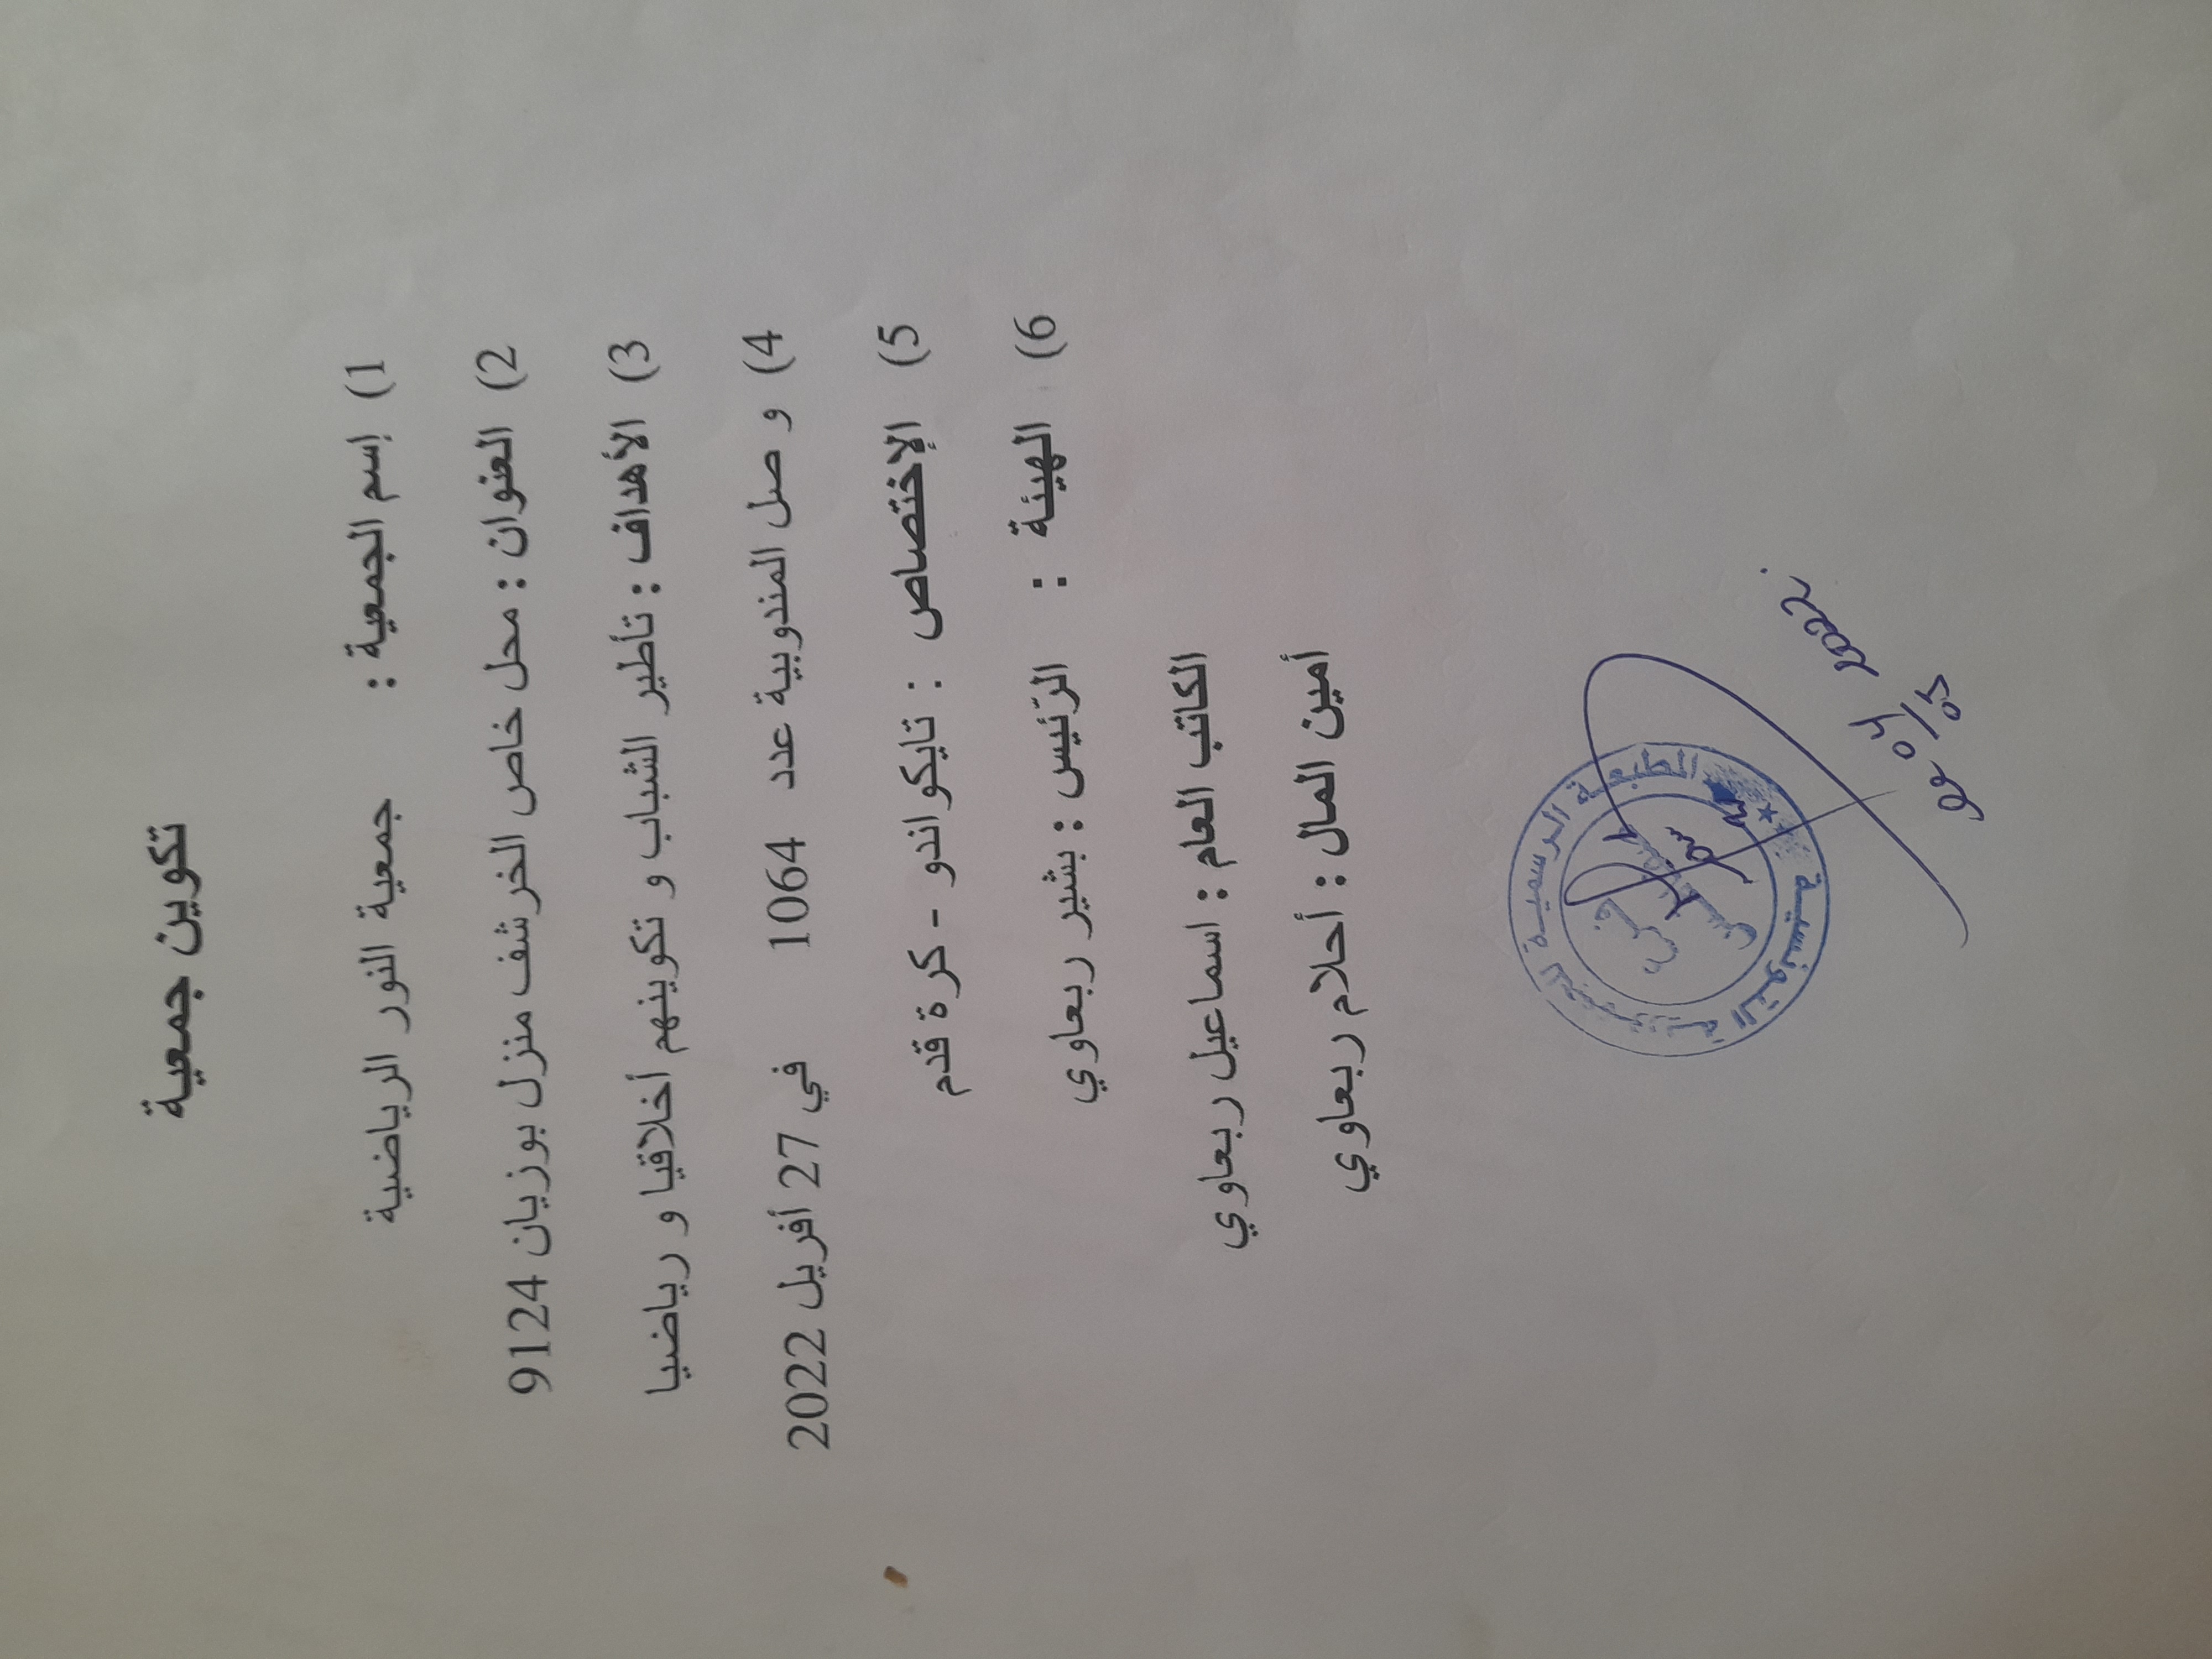 تكوين جمعية
1) إسم الجمعية : جمعية النور الرياضية
2) العنوان : محل خاص الخرشف منزل بوزيان 9124
3) الأهداف : تأطير الشباب و تكوينهم أخلاقيا و رياضيا
4) و صل المندوبية عدد 1064 في 27 أفريل 2022
5) الإختصاص : تايكواندو - كرة قدم
6) الهيئة : الرّئيس : بشير ربعاوي
الكاتب العام : اسماعيل ربعاوي
أمين المال : أحلام ربعاوي
المطبعة الرسمية للجمهورية التونسية